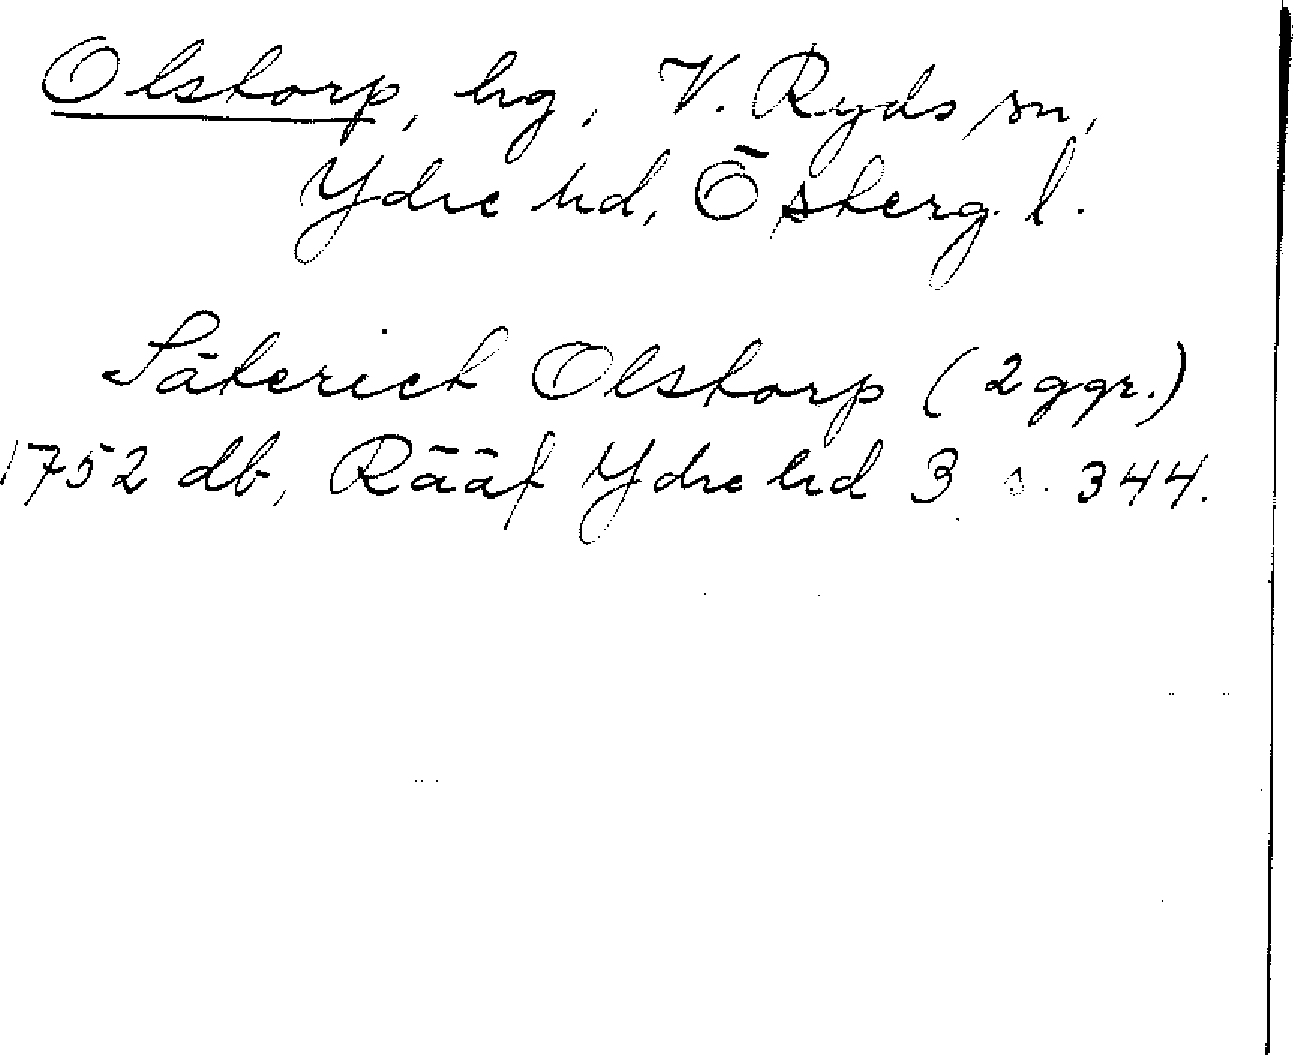 Olstorp, hg, V. Ryds sn,
Ydre hd, Östergl.
Säterich Olstorp (2 ggr.)
1752 db, Rääf Ydre hd 3 s. 344.